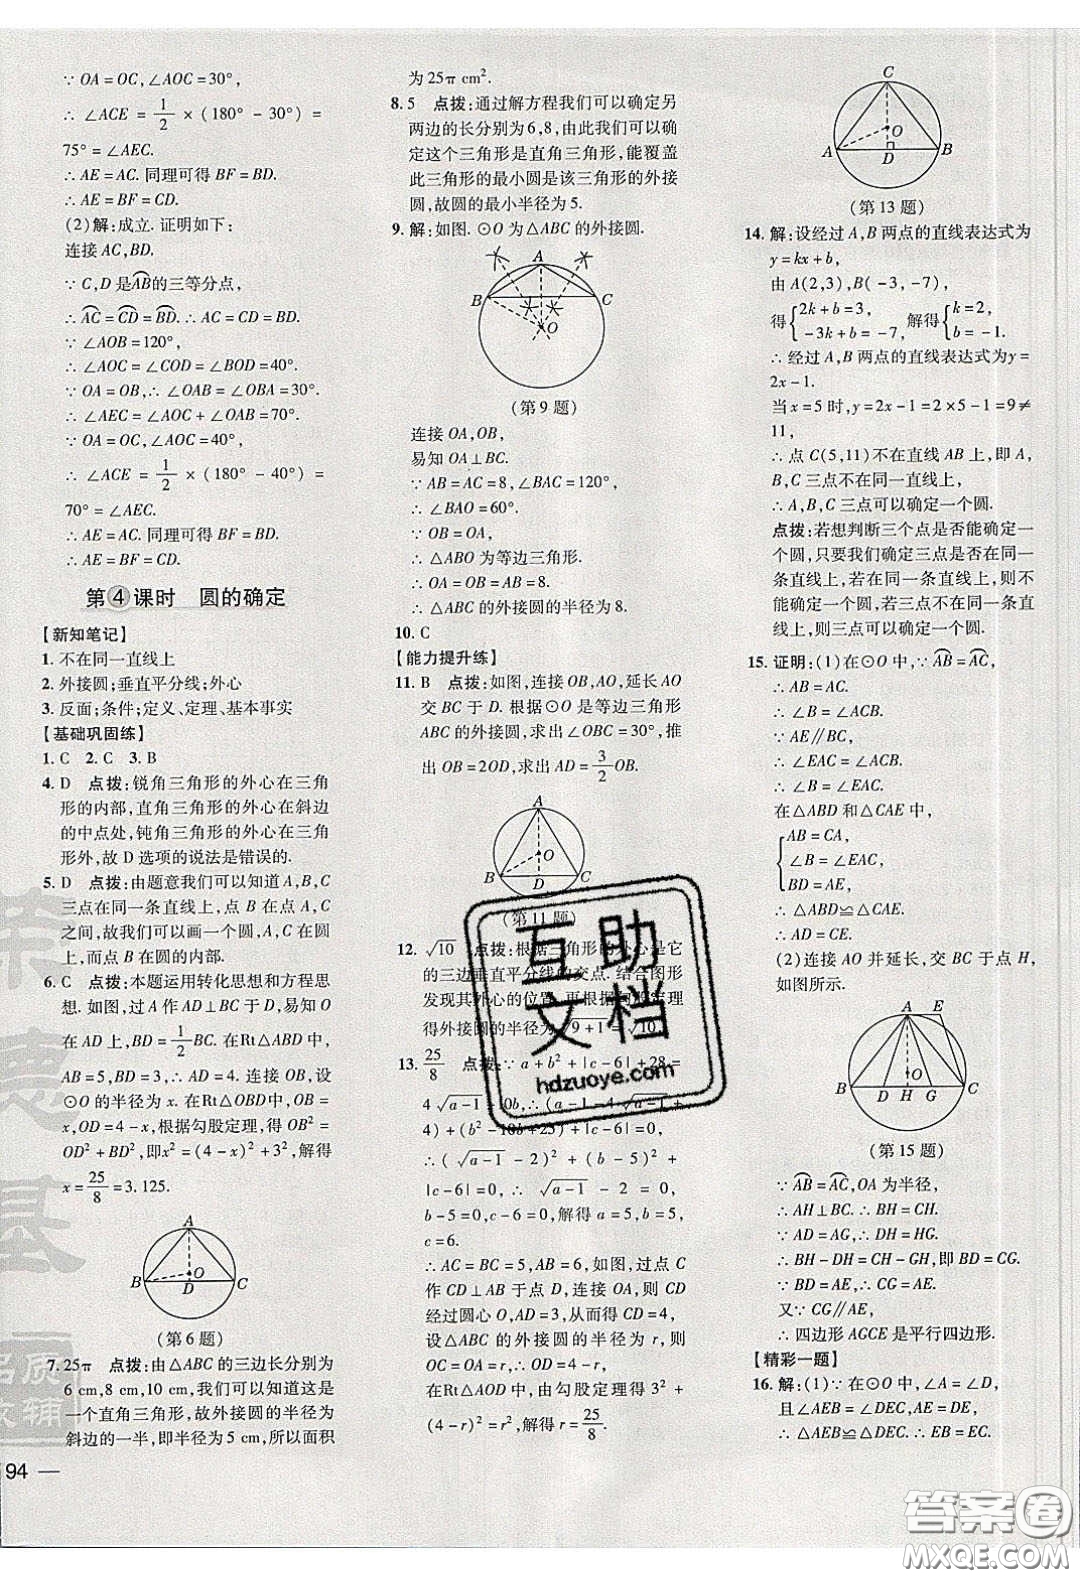 ∵ OA = OC, ∠AOC = 30°,
∴ ∠ACE = 1/2 × (180° - 30°) =
75° = ∠AEC.
∴ AE = AC. 同理可得 BF = BD.
∴ AE = BF = CD.
(2)解:成立. 证明如下:
连接 AC, BD.
∵ C, D 是⌒AB的三等分点,
∴ ⌒AC = ⌒CD = ⌒BD. ∴ AC = CD = BD.
∵ ∠AOB = 120°,
∴ ∠AOC = ∠COD = ∠BOD = 40°.
∵ OA = OB, ∴ ∠OAB = ∠OBA = 30°.
∴ ∠AEC = ∠AOC + ∠OAB = 70°.
∵ OA = OC, ∠AOC = 40°,
∴ ∠ACE = 1/2 × (180° - 40°) =
70° = ∠AEC.
∴ AE = AC. 同理可得 BF = BD.
∴ AE = BF = CD.
第④课时 圆的确定
【新知笔记】
1. 不在同一直线上
2. 外接圆;垂直平分线;外心
3. 反面;条件;定义、定理、基本事实
【基础巩固练】
1. C 2. C 3. B
4. D 点拨:锐角三角形的外心在三角
形的内部,直角三角形的外心在斜边
的中点处,钝角三角形的外心在三角
形外,故 D 选项的说法是错误的.
5. D 点拨:由题意我们可以知道 A, B, C
三点在同一条直线上,且 A, C 在点 B
两侧,故我们可以画一个圆, A, C 在圆
上,而点 B 在圆的内部.
6. C 点拨:本题运用转化思想和方程思
想. 如图,过 A 作 AD⊥BC 于 D, 易知 O
在 AD 上, BD = 1/2 BC. 在Rt△ABD中,
AB = 5, BD = 3, ∴ AD = 4. 连接 OB, 设
⊙O 的半径为 x. 在Rt△OBD中, OB =
x, OD = 4 - x, 根据勾股定理, 得 OB² =
OD² + BD², 即x² = (4 - x)² + 3², 解得
x = 25/8 = 3.125.
A
O
B
D
C
(第 6 题)
7. 25π 点拨:由△ABC 的三边长分别为
6 cm, 8 cm, 10 cm, 我们可以知道这是
一个直角三角形,故外接圆的半径为
斜边的一半,即半径为 5 cm,所以面积
94
为 25π cm².
8. 5 点拨:通过解方程我们可以确定另
两边的长分别为 6, 8, 由此我们可以确
定这个三角形是直角三角形,能覆盖
此三角形的最小圆是该三角形的外接
圆,故圆的最小半径为 5.
9. 解:如图. ⊙O 为△ABC 的外接圆.
A
B
C
O
(第 9 题)
连接 OA, OB,
易知 OA⊥BC.
∵ AB = AC = 8, ∠BAC = 120°,
∴ ∠BAO = 60°.
∵ OB = OA,
∴ △ABO 为等边三角形.
∴ OA = OB = AB = 8.
∴ △ABC 的外接圆的半径为 8.
10. C
【能力提升练】
11. B 点拨:如图,连接 OB, AO, 延长 AO
交 BC 于 D. 根据⊙O 是等边三角形
ABC 的外接圆,求出∠OBC = 30°, 推
出 OB = 2OD, 求出 AD = 3/2 OB.
A
O
B
D
C
(第 11 题)
12. √10 点拨:根据三角形的外心是它
的三边垂直平分线的交点. 结合图形
发现其外心的位置,再根据勾股定理
得外接圆的半径为√(9+1) = √10.
13. 25/8 点拨:∵ a + b² + |c - 6| + 28 =
4√(a-1) + 10b, ∴ (a - 1 - 4√(a-1) +
4) + (b² - 10b + 25) + |c - 6| = 0,
∴ (√(a-1) - 2)² + (b - 5)² +
|c - 6| = 0, ∴ √(a-1) - 2 = 0,
b - 5 = 0, c - 6 = 0, 解得 a = 5, b = 5,
c = 6.
∴ AC = BC = 5, AB = 6. 如图,过点 C
作 CD⊥AB 于点 D, 连接 OA, 则 CD
经过圆心 O, AD = 3, 从而得 CD = 4,
设△ABC 的外接圆的半径为 r, 则
OC = OA = r, ∴ OD = CD - OC = 4 -
r. 在Rt△AOD 中,由勾股定理得 3² +
(4 - r)² = r², 解得 r = 25/8.
C
O
A
D
B
(第 13 题)
14. 解:设经过 A, B 两点的直线表达式为
y = kx + b,
由 A(2, 3), B(-3, -7),
得{2k + b = 3, -3k + b = -7, 解得{k = 2, b = -1.
∴ 经过 A, B 两点的直线表达式为 y =
2x - 1.
当 x = 5 时, y = 2x - 1 = 2×5 - 1 = 9 ≠
11,
∴ 点 C(5, 11)不在直线 AB 上,即 A,
B, C 三点不在同一直线上,
∴ A, B, C 三点可以确定一个圆.
点拨:若想判断三个点是否能确定一
个圆,只要我们确定三点是否在同一
条直线上,若三点不在同一条直线上,
则能确定一个圆,若三点在同一条直
线上,则三点不可以确定一个圆.
15. 证明:(1)在⊙O 中, ∵ ⌒AB = ⌒AC,
∴ AB = AC.
∴ ∠B = ∠ACB.
∵ AE∥BC,
∴ ∠EAC = ∠ACB.
∴ ∠B = ∠EAC.
在△ABD 和△CAE 中,
AB = CA,
∠B = ∠EAC,
BD = AE,
∴ △ABD≌△CAE.
∴ AD = CE.
(2)连接 AO 并延长,交 BC 于点 H,
如图所示.
A
E
O
B
D
H
G
C
(第 15 题)
∵ ⌒AB = ⌒AC, OA 为半径,
∴ AH⊥BC. ∴ BH = CH.
∵ AD = AG, ∴ DH = HG.
∴ BH - DH = CH - GH, 即 BD = CG.
∵ BD = AE, ∴ CG = AE.
又∵ CG∥AE,
∴ 四边形 AGCE 是平行四边形.
【精彩一题】
16. 解:(1)∵ 在⊙O 中, ∠A = ∠D,
且∠AEB = ∠DEC, AE = DE,
∴ △AEB≌△DEC.
互助
文档
hdzuoye.com
答案圈
MXQE.COM
品质
教辅